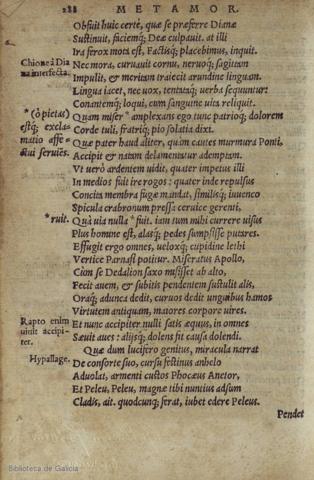 288 METAMOR.
Obfuit huic certè, quæ se præferre Dianæ
Sustinuit, faciemq; Deæ culpauit. at illi
Ira ferox mota est, Factisq; placebimus, inquit.
Chione à Dia Nec mora, curuauit cornu, neruoq; sagittam
na interfecta. Impulit, & meritam traiecit arundine linguam.
Lingua iacet, nec uox, tentataq; uerba sequuntur:
Conantemq; loqui, cum sanguine uita reliquit.
* (ô pietas) Quàm miser * amplexans ego tunc patrioq; dolorem
estq; excla- Corde tuli, fratriq; pio solatia dixi.
matio affe- Quæ pater haud aliter, quàm cautes murmura Ponti,
ctui seruiẽs. Accipit & natam delamentatur ademptam.
Vt uerò ardentem uidit, quater impetus illi
In medios fuit ire rogos: quater inde repulsus
Concita membra fugæ mandat, similisq; iuuenco
Spicula crabronum pressa ceruice gerenti,
* ruit. Quà uia nulla * fuit. iam tum mihi currere uisus
Plus homine est, alasq; pedes sumpsisse putares.
Effugit ergo omnes, ueloxq; cupidine lethi
Vertice Parnasi potitur. Miseratus Apollo,
Cùm se Dedalion saxo misisset ab alto,
Fecit auem, & subitis pendentem sustulit alis,
Oraq; adunca dedit, curuos dedit unguibus hamos
Virtutem antiquam, maiores corpore uires.
Rapto enim Et nunc accipiter nulli satis æquus, in omnes
uiuit accipi- Sæuit aues: alijsq; dolens fit causa dolendi.
ter.
Quæ dum lucifero genitus, miracula narrat
Hypallage. De consorte suo, cursu festinus anhelo
Aduolat, armenti custos Phocæus Anetor,
Et Peleu, Peleu, magnæ tibi nuntius adsum
Cladis, ait. quodcunq; ferat, iubet edere Peleus.
Pendet
Biblioteca de Galicia